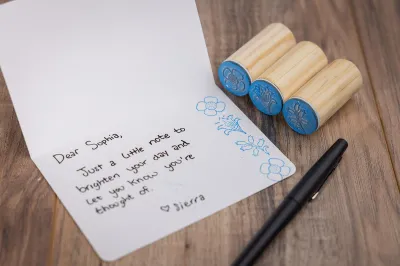 Dear Sophia,
Just a little note to
brighten your day and
let you know you're
thought of.
♡ Sierra